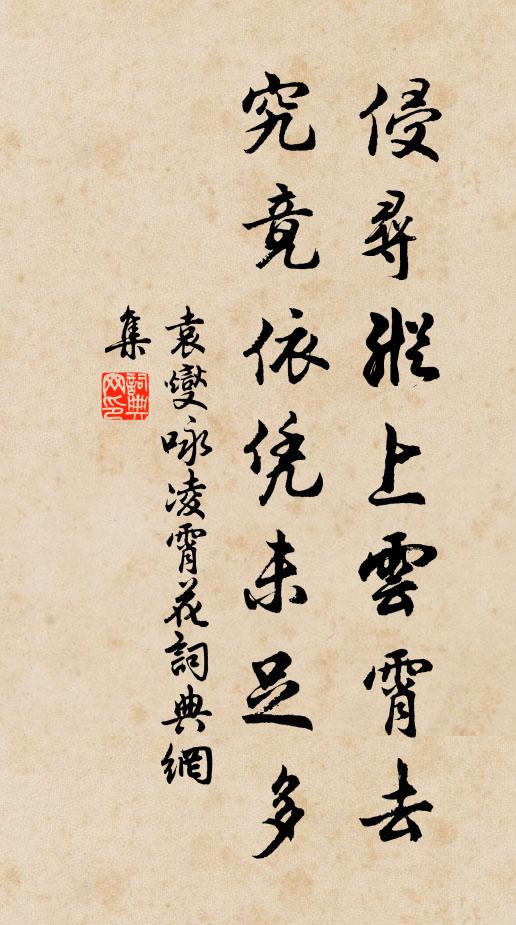 侵尋縱上雲霄去
究竟依凭未足多
袁燮咏凌霄花詞典網
集
詞典
网印